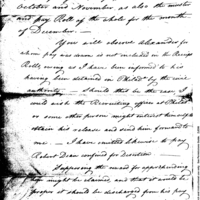 October and November, as also the muster
and pay Rolls of the whole for the month
of December. —
You will observe Alexander for
whom pay was drawn is not included in the Receipt
Rolls, owing as I have been informed to his
having been detained in Philada by the civil
authority — should this be the case I
wish the Recruiting officer at Philada
or some other person might
obtain his release and send him forward to
me. — I have omitted likewise to pay
Robert Dean confined for Desertion
Supposing the reward for apprehending
him might be claimed, and that it would be
proper it should be discharged from his pay